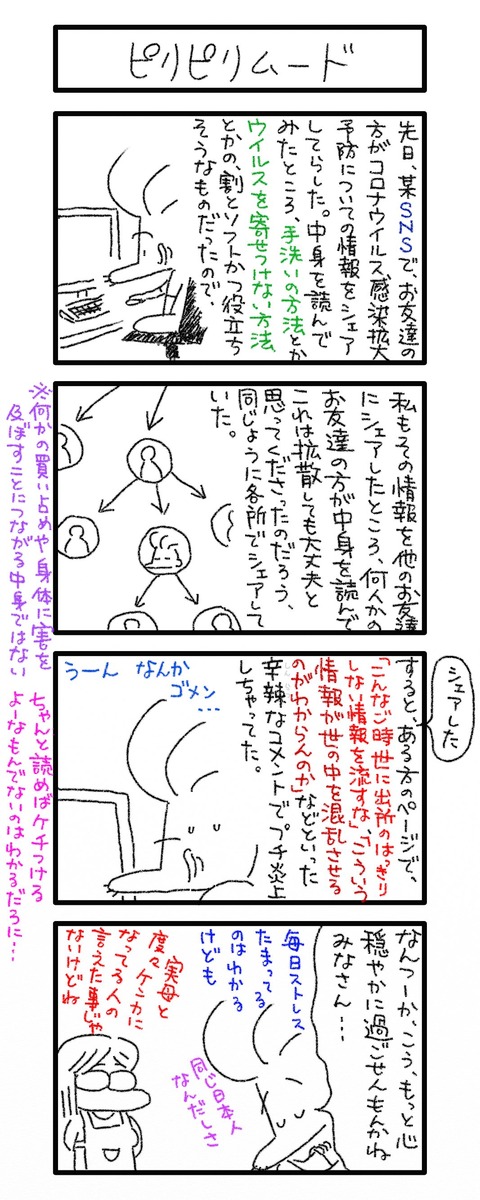 ピリピリムード
先日、某SNSで、お友達の
方がコロナウイルス感染拡大
予防についての情報をシェア
してらした。中身を読んで
みたところ、手洗いの方法とか
ウイルスを寄せつけない方法
とかの、割とソフトかつ役立ち
そうなものだったので、
私もその情報を他のお友達
にシェアしたところ、何人かの
お友達の方が中身を読んで
これは拡散しても大丈夫と
思ってくださったのだろう、
同じように各所でシェアして
いた。
※何かの買い占めや身体に害を
及ぼすことにつながる中身ではない
シェアした
すると、ある方のページで、
「こんなご時世に出所のはっきり
しない情報を流すな」、「こういう
情報が世の中を混乱させる
のがわからんのか」などといった
辛辣なコメントでプチ炎上
しちゃってた。
うーん なんか
ゴメン
…
ちゃんと読めばケチつける
よーなもんでないのはわかるだろに…
なんつーか、こう、もっと心
穏やかに過ごせんもんかね
みなさん…
毎日ストレス
たまってる
のはわかる
けども
同じ日本人
なんだしさ
実母と
度々ケンカに
なってる人の
言えた事じゃ
ないけどね